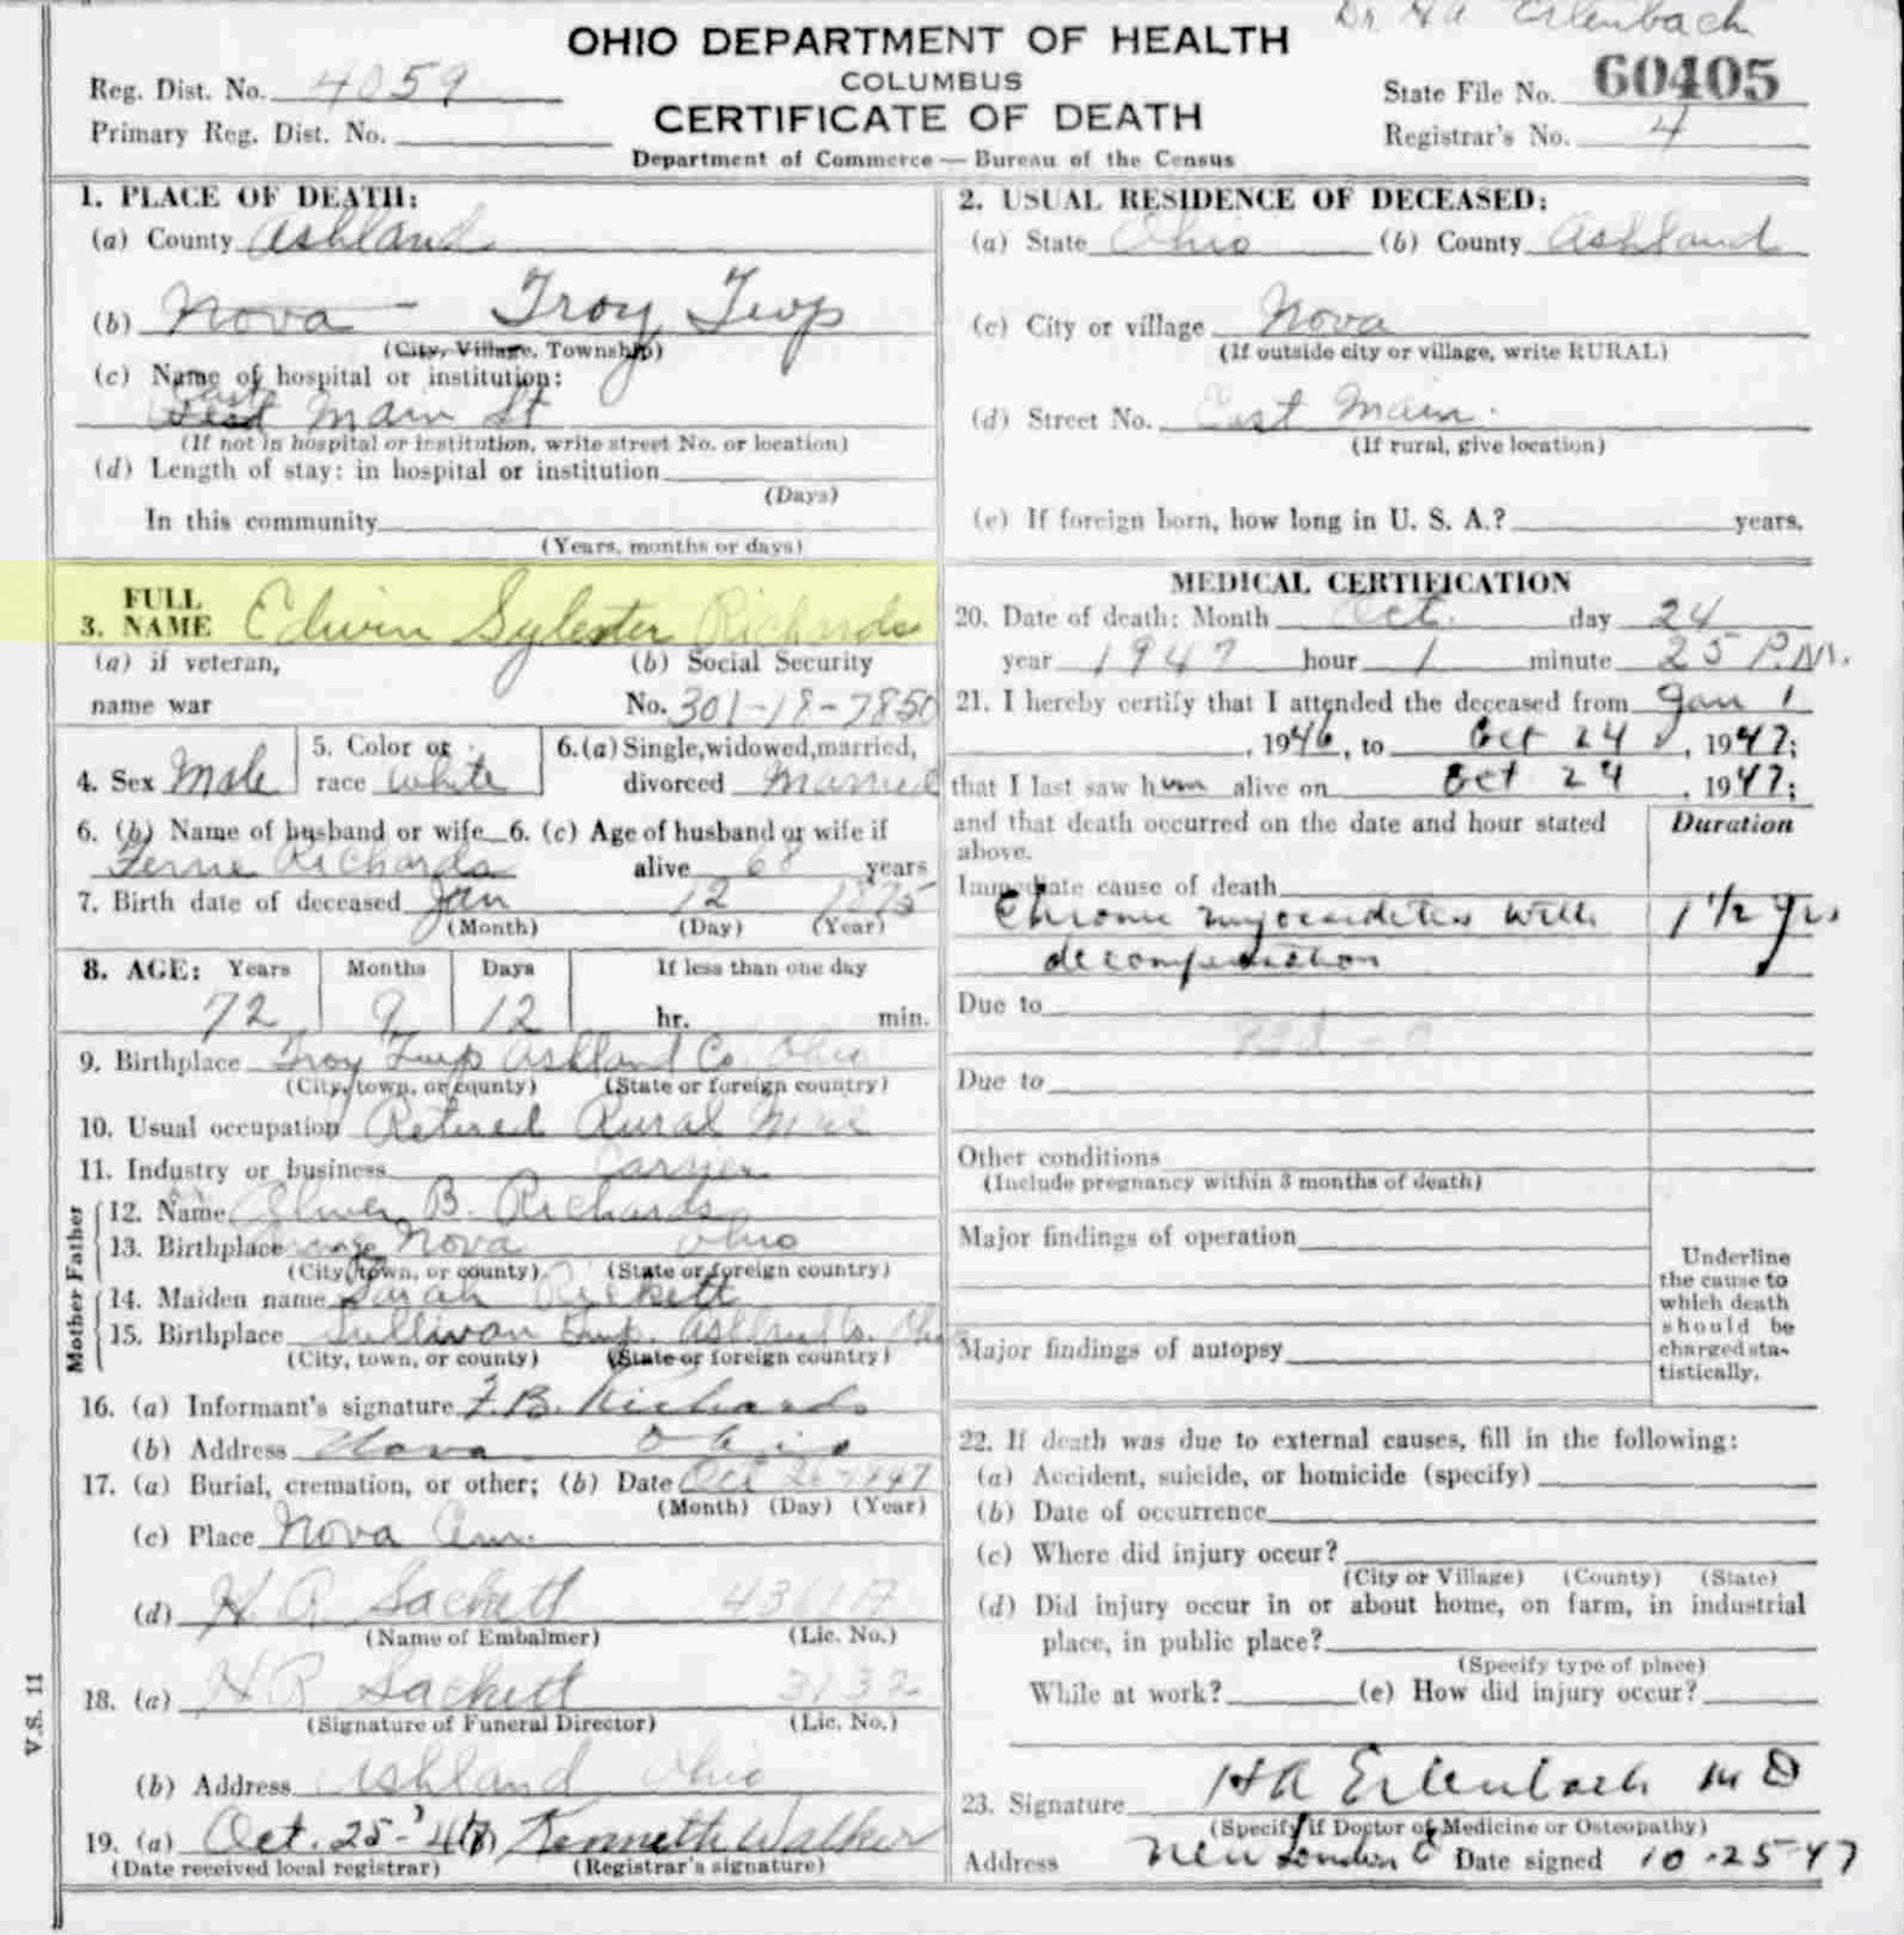 Dr HA Erlenbach
OHIO DEPARTMENT OF HEALTH
COLUMBUS
CERTIFICATE OF DEATH
Department of Commerce — Bureau of the Census
Reg. Dist. No. 4059
Primary Reg. Dist. No.
State File No. 60405
Registrar's No. 4
1. PLACE OF DEATH:
(a) County Ashland
(b) Nova - Troy Twp
(City, Village, Township)
(c) Name of hospital or institution:
East Main St
(If not in hospital or institution, write street No. or location)
(d) Length of stay: in hospital or institution
(Days)
In this community
(Years, months or days)
2. USUAL RESIDENCE OF DECEASED:
(a) State Ohio (b) County Ashland
(c) City or village Nova
(If outside city or village, write RURAL)
(d) Street No. East Main.
(If rural, give location)
(e) If foreign born, how long in U. S. A.? years.
FULL
3. NAME Edwin Sylester Richards
(a) if veteran,
name war
(b) Social Security
No. 301-18-7850
4. Sex Male
5. Color or
race White
6.(a) Single, widowed, married,
divorced Married
6. (b) Name of husband or wife 6. (c) Age of husband or wife if
Ferne Richards alive 68 years
7. Birth date of deceased Jan 12 1875
(Month) (Day) (Year)
8. AGE: Years Months Days If less than one day
72 9 12 hr. min.
9. Birthplace Troy Twp Ashland Co. Ohio
(City, town, or county) (State or foreign country)
10. Usual occupation Retired Rural Mail
11. Industry or business Carrier
Mother Father
12. Name B. Richards
13. Birthplace Nova Ohio
(City, town, or county) (State or foreign country)
14. Maiden name Sarah Rickett
15. Birthplace Sullivan Twp. Ashland Co. Ohio
(City, town, or county) (State or foreign country)
16. (a) Informant's signature F. B. Richards
(b) Address Nova Ohio
17. (a) Burial, cremation, or other; (b) Date Oct 26 1947
(Month) (Day) (Year)
(c) Place Nova
(d) H. R. Sackett
(Name of Embalmer) (Lic. No.)
18. (a) H R Sackett 3132
(Signature of Funeral Director) (Lic. No.)
(b) Address Ashland Ohio
19. (a) Oct. 25-'47 (b) Kenneth Walker
(Date received local registrar) (Registrar's signature)
V.S. 11
MEDICAL CERTIFICATION
20. Date of death: Month Oct. day 24
year 1947 hour 1 minute 25 P.M.
21. I hereby certify that I attended the deceased from Jan 1
, 1946, to Oct 24, 1947;
that I last saw him alive on Oct 24, 1947;
and that death occurred on the date and hour stated
above.
Duration
Immediate cause of death
Chronic myocarditis with 1 1/2 yrs
decompensation
Due to
Due to
Other conditions
(Include pregnancy within 3 months of death)
Major findings of operation
Major findings of autopsy
Underline
the cause to
which death
should be
charged sta-
tistically.
22. If death was due to external causes, fill in the following:
(a) Accident, suicide, or homicide (specify)
(b) Date of occurrence
(c) Where did injury occur?
(City or Village) (County) (State)
(d) Did injury occur in or about home, on farm, in industrial
place, in public place?
(Specify type of place)
While at work? (e) How did injury occur?
23. Signature HA Erlenbach MD
(Specify if Doctor of Medicine or Osteopathy)
Address New London O Date signed 10-25-47